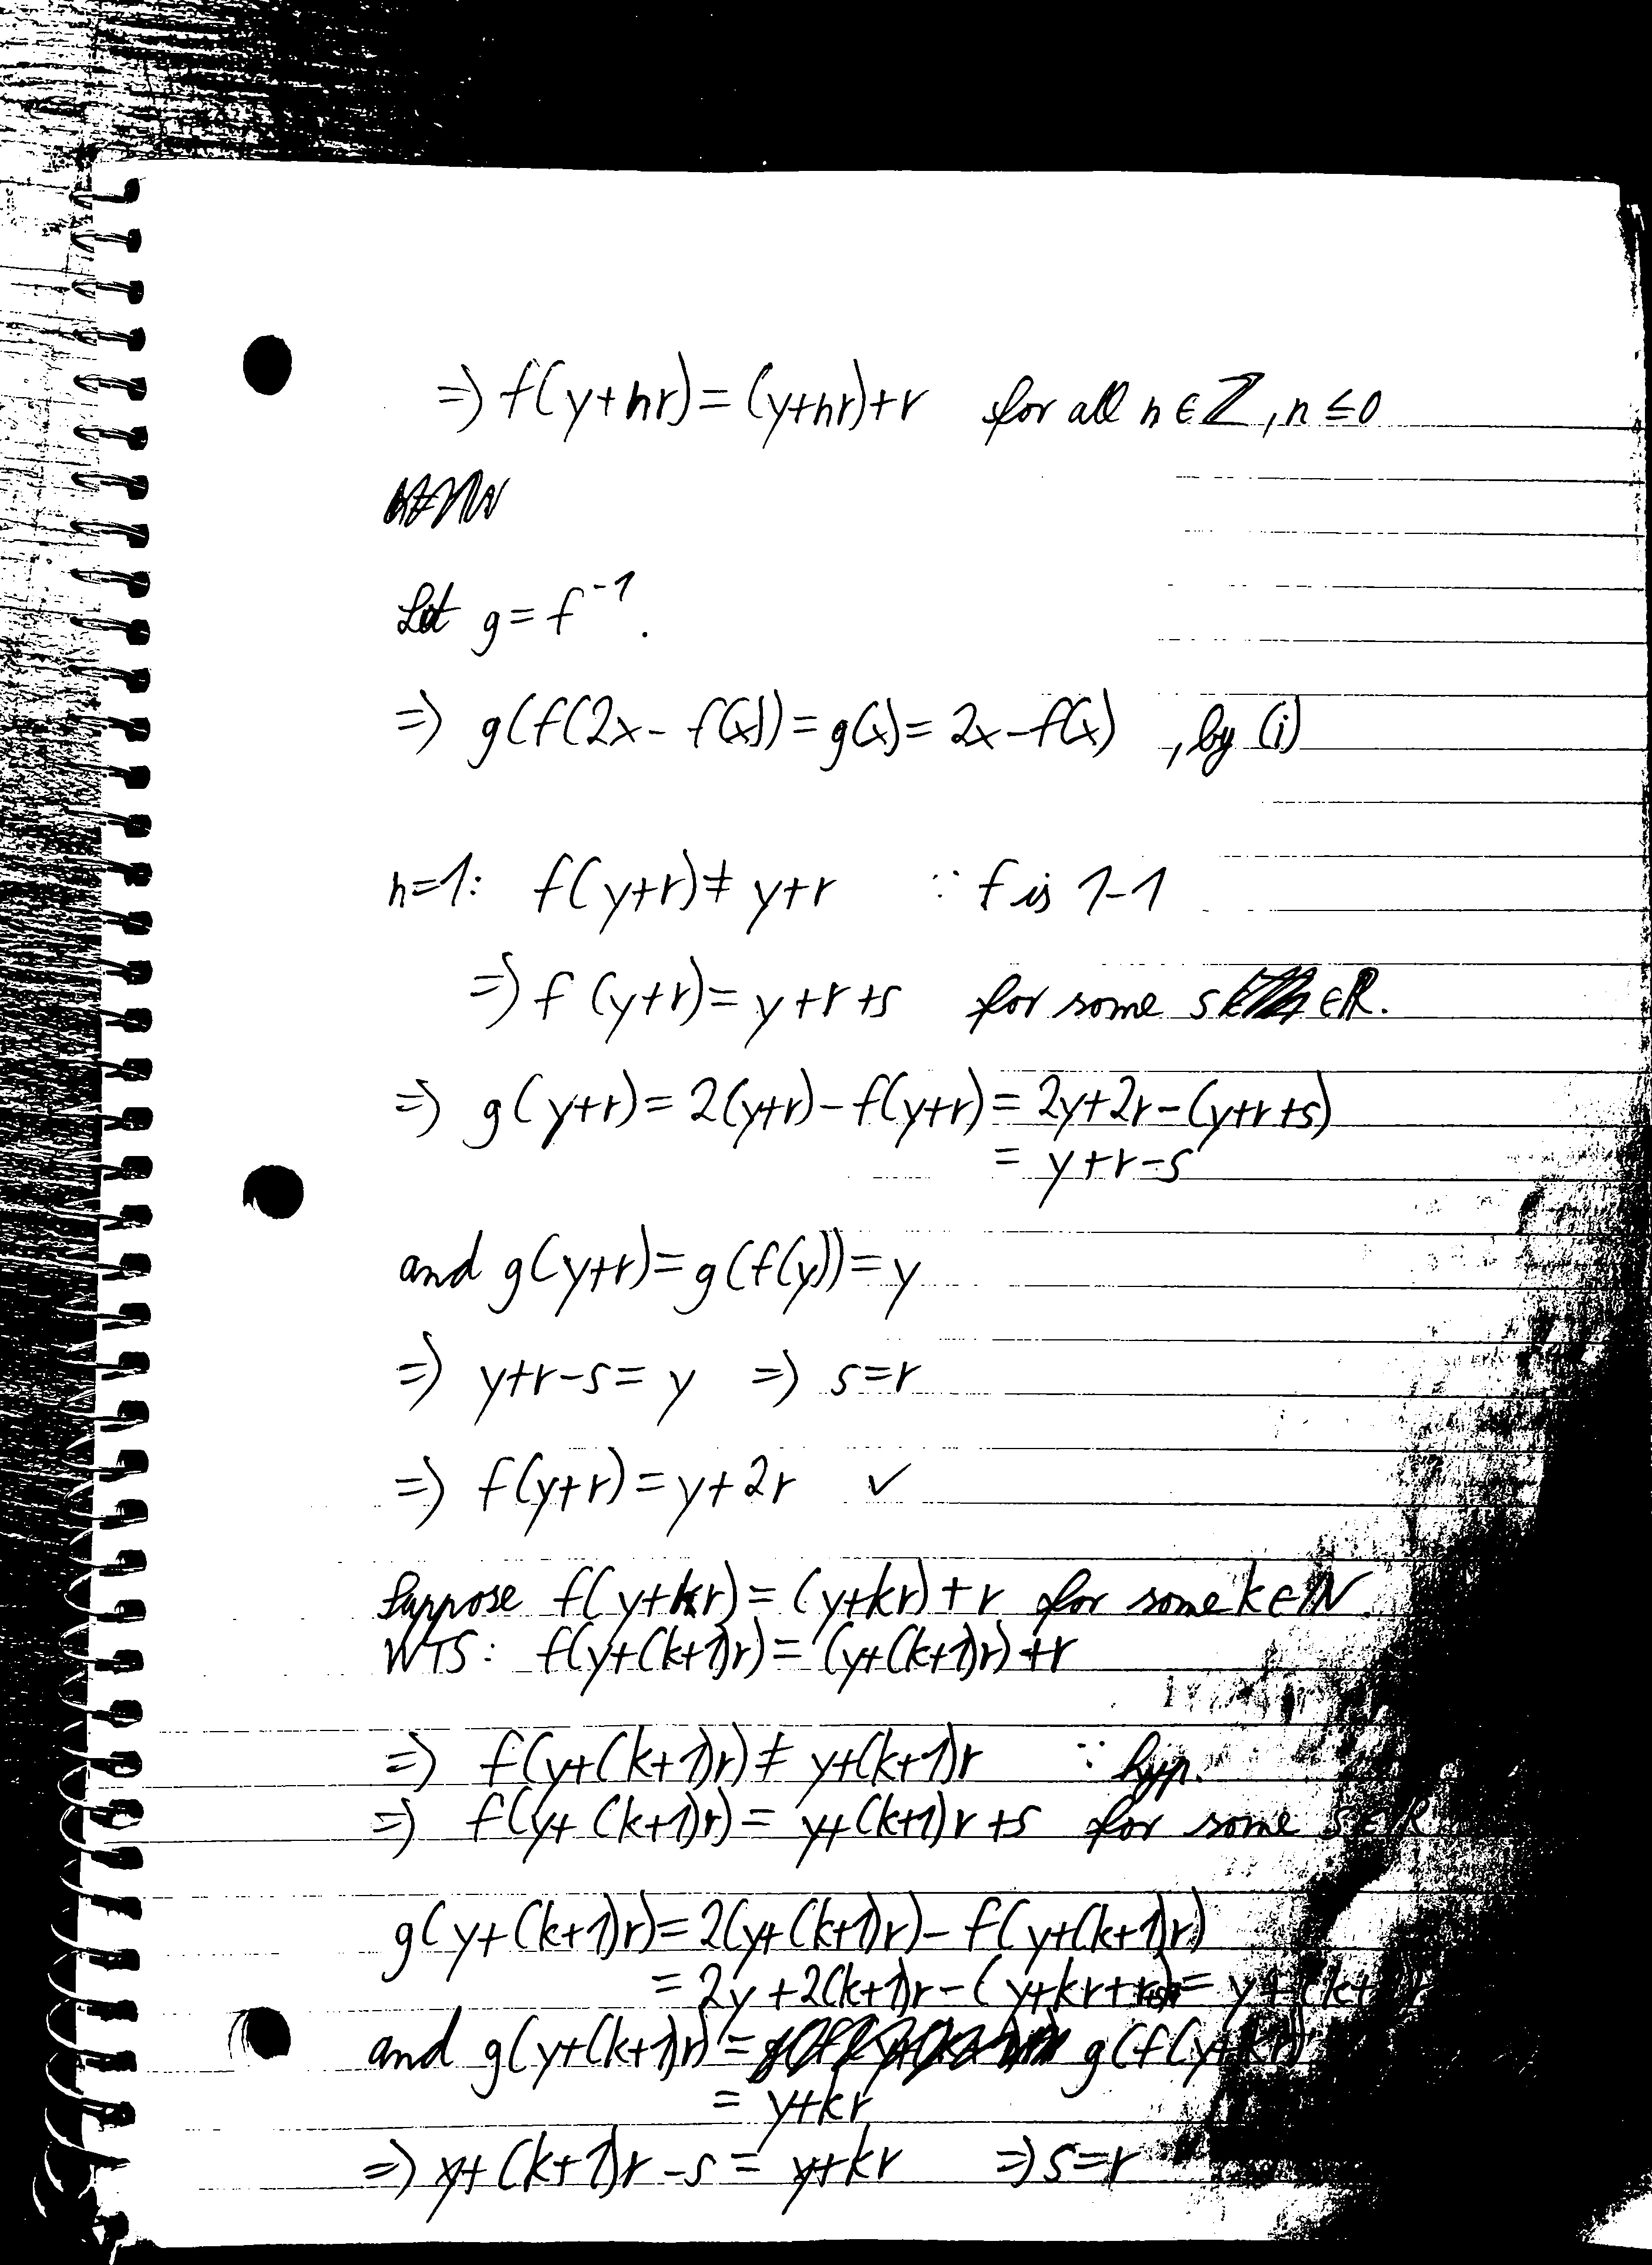 ⇒ f(y+nr) = (y+nr)+r for all n∈ℤ, n≤0
Let g = f⁻¹.
⇒ g(f(2x-f(x))) = g(x) = 2x-f(x) , by (i)
n=1: f(y+r) ≠ y+r ∵ f is 1-1
⇒ f(y+r) = y+r+s for some s ∈ℝ.
⇒ g(y+r) = 2(y+r)-f(y+r) = 2y+2r-(y+r+s)
= y+r-s
and g(y+r) = g(f(y)) = y
⇒ y+r-s = y ⇒ s=r
⇒ f(y+r) = y+2r ✓
Suppose f(y+kr) = (y+kr)+r for some k∈ℕ.
WTS: f(y+(k+1)r) = (y+(k+1)r)+r
⇒ f(y+(k+1)r) ≠ y+(k+1)r ∵ hyp.
⇒ f(y+(k+1)r) = y+(k+1)r+s for some s∈ℝ
g(y+(k+1)r) = 2(y+(k+1)r)-f(y+(k+1)r)
= 2y+2(k+1)r-(y+kr+r+s) = y+(k+
and g(y+(k+1)r) = g(f(y+kr))
= y+kr
⇒ y+(k+1)r-s = y+kr ⇒ s=r